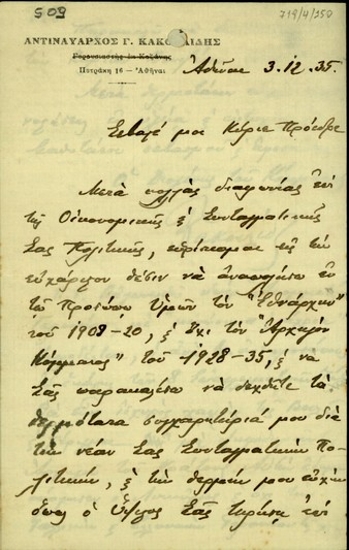 509
719/4/250
ΑΝΤΙΝΑΥΑΡΧΟΣ Γ. ΚΑΚΟΥΛΙΔΗΣ
Γερουσιαστής ἐκ Κοζάνης
Πετράκη 16 — Ἀθῆναι
Ἀθῆναι 3.12.35.
Σεβαστέ μοι Κύριε Πρόεδρε
Μετὰ πολλὰς διαφωνίας ἐπὶ
τῆς Οἰκονομικῆς & Συνταγματικῆς
Σας Πολιτικῆς, εὑρίσκομαι εἰς τὴν
εὐχάριστον θέσιν νὰ ἀναπολήσω ἐν
τῷ Προσώπῳ Ὑμῶν τὸν "Ἐθνάρχην"
τοῦ 1909-20, & ὄχι τὸν "Ἀρχηγὸν
Κόμματος" τοῦ 1928-35, & νὰ
Σᾶς παρακαλέσω νὰ δεχθῆτε τὰ
θερμότατα συγχαρητήριά μου διὰ
τὴν νέαν Σας Συνταγματικὴν Πο-
λιτικήν, & τὴν θερμήν μου εὐχὴν
ὅπως ὁ Ὕψιστος Σᾶς τηρήσῃ ἐπὶ